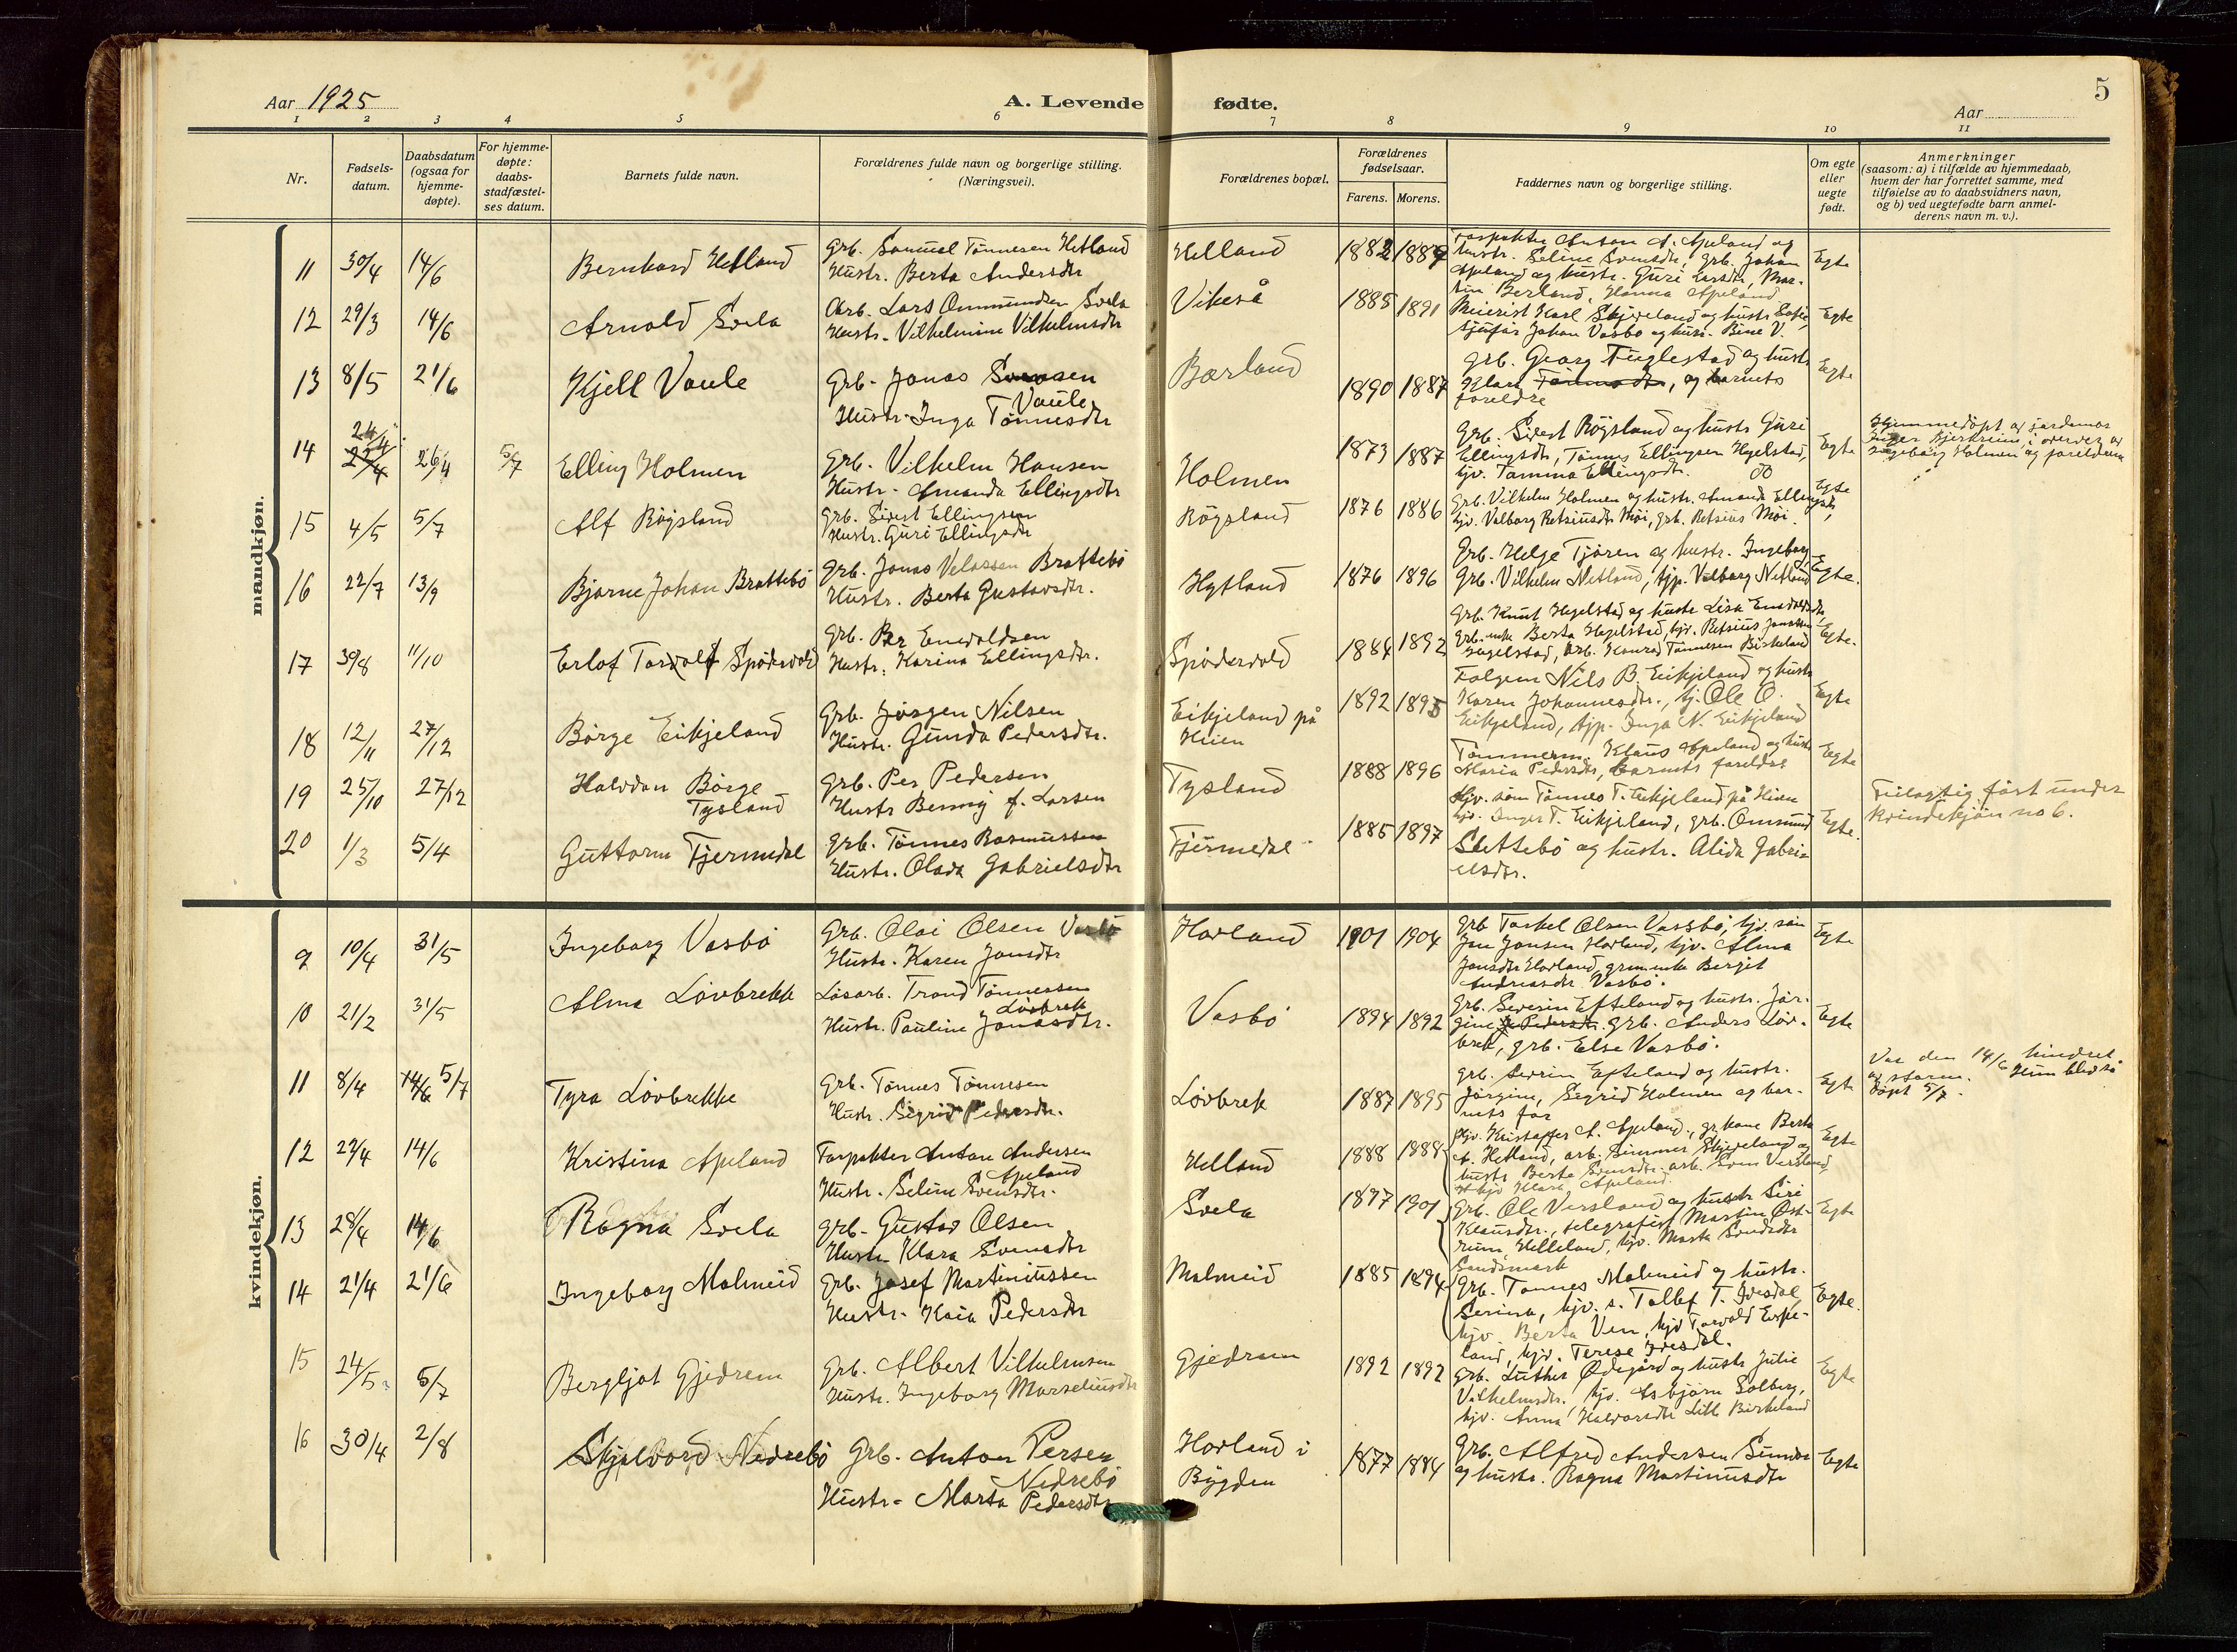 5
Aar 1925
A. Levende fødte.
Aar
1 2 3 4 5 6 7 8 9 10 11
Nr.
Fødsels-
datum.
Daabsdatum
(ogsaa for
hjemme-
døpte).
For hjemme-
døpte:
daabs-
stadfæstel-
ses datum.
Barnets fulde navn.
Forældrenes fulde navn og borgerlige stilling.
(Næringsvei).
Forældrenes bopæl.
Forældrenes
fødselsaar.
Farens. Morens.
Faddernes navn og borgerlige stilling.
Om egte
eller
uegte
født.
Anmerkninger
(saasom: a) i tilfælde av hjemmedaab,
hvem der har forrettet samme, med
tilføielse av to daabsvidners navn,
og b) ved uegtefødte barn anmel-
derens navn m. v.).
mandkjøn.
11 30/4 14/6 Bernhard Hetland
Grb. Samuel Tønnesen Hetland
Hustr. Berta Andersdtr
Helland 1882 1889
Forpakter Anton A. Apeland og
hustr. Seline Svensdtr, grb. Johan
Apeland og hustr. Guri Larsdtr, Mar-
tin Berland, Hanna Apeland
Egte
12 29/3 14/6 Arnold Svela
Arb. Lars Ommundsen Svela
Hustr. Vilhelmine Vilhelmsdtr
Vikeså 1885 1891
Meierist Karl Skjæveland og hustr Sofie,
sjåfør Johan Vasbø og hustr. Bine V.
Egte
13 8/5 21/6 Kjell Vaule
Grb. Jonas Svensen
Vaule
Hustr. Inga Tønnesdtr
Bærland 1890 1887
Grb. Georg Fuglestad og hustr
Klara Tønnesdtr, og barnets
foreldre
Egte
14 24/4 26/4 5/7 Elling Holmen
Grb. Vilhelm Hansen
Hustr. Amanda Ellingsdtr
Holmen 1873 1887
Grb. Sivert Røgsland og hustr Guri
Ellingsdtr, Tønnes Ellingsen Hegelstad,
hjv. Tomina Ellingsdtr. do
Egte
Hjemmedøpt av jordemor
Inger Bjerkreim i overvær av
Ingeborg Holmen og foreldrene
15 4/5 5/7 Alf Røgsland
Grb. Sivert Ellingsen
Hustr. Guri Ellingsdtr
Røgsland 1876 1886
Grb. Vilhelm Holmen og hustr. Amanda Ellingsdtr,
hjv. Valborg Retsiusdtr Møi, grb. Retsius Møi.
Egte
16 22/7 13/9 Bjarne Johan Brattebø
Grb. Jonas Velassen Brattebø
Hustr. Berta Gustavsdtr.
Hytland 1876 1896
Grb. Helge Tjøren og hustr. Ingeborg
Grb. Vilhelm Netland, tjp. Valborg Netland
Egte.
17 30/8 11/10 Erlof Torvolf Spødervold
Grb. Per Enevoldsen
Hustr. Karina Ellingsdtr.
Spødervold 1884 1892
Grb. Knut Hegelstad og hustr Lisa Enevoldsdtr
Grb.enke Berta Hegelstad, hjv. Retsius Jonassen
Hegelstad, Arb. Konrad Tønnesen Birkeland
Egte.
18 12/11 27/12 Børge Eikjeland
Grb. Jørgen Nilsen
Hustr. Gunda Pedersdtr.
Eikjeland på
Heien
1892 1895
Folgem Nils B. Eikjeland og hustr
Karen Johannesdtr., tj. Ole O.
Eikjeland, tjp. Inga N. Eikjeland
Egte
19 25/10 27/12 Halvdan Børge
Tysland
Grb. Per Pedersen
Hustr Benny f. Larsen
Tysland 1888 1896
Tømmerm. Klaus Apeland og hustr
Maria Pedersdtr, barnets foreldre
Egte
20 1/3 5/4 Guttorm Fjermedal
Grb. Tønnes Rasmussen
Hustr. Olava Gabrielsdtr
Fjermedal 1885 1897
Hjv. søn Tønnes T. Eikjeland på Heien
hjv. Inger T. Eikjeland, grb. Omund
Slettebø og hustr. Alida Gabri-
elsdtr.
Egte.
Feilagtig ført under
kvindekjøn no 6.
kvindekjøn.
9 10/4 31/5 Ingeborg Vasbø
Grb. Olai Olsen Vasbø
Hustr. Karen Jonsdtr
Hovland 1901 1904
Grb Torkel Olsen Vassbø, hjv. søn
Jon Jonsen Hovland, hjv. Alma
Jonsdtr Hovland, grm.enke Berget
Andreasdtr Vasbø.
Egte
10 21/2 31/5 Alma Løvbrekk
Løsarb. Trond Tønnessen
Løvbrek
Hustr. Pauline Jonasdtr.
Vasbø 1894 1892
Grb. Severin Efteland og hustr. Jør-
gine Pedersdtr. Grb. Anders Løv-
brek, grb. Else Vasbø.
Egte
11 8/4 14/6 5/7 Tyra Løvbrekke
Grb. Tønnes Tønnesen
Hustr. Sigrid Pedersdtr.
Løvbrek 1887 1895
Grb. Severin Efteland og hustr.
Jørgine, Sigrid Holmen og bar-
nets far
Egte
Var den 14/6 hindret
av storm. Hun blev så
døpt 5/7.
12 22/4 14/6 Kristina Apeland
Forpakter Anton Andersen
Apeland
Hustr. Seline Svensdtr.
Helland 1888 1888
Hjv. Kristoffer A. Apeland, gr.kone Berta
A. Hetland, arb. Simmon Skjæveland og
hustr Berta Svensdtr. arb. Sven Versland,
hjv Klara Apeland.
Egte
13 28/4 14/6 Ragna Svela
Grb. Gustav Olsen
Hustr Klara Svensdtr
Svela 1897 1901
Grb. Ole Versland og hustr Siri
Klausdtr., telegrafist Martin Øst-
rum, Helleland, hjv. Marta Sondsdtr
Sandsmark
Egte
14 21/4 21/6 Ingeborg Malmeid
Grb. Josef Martiniussen
Hustr. Kaia Pedersdtr
Malmeid 1885 1894
Grb. Tønnes Malmeid og hustr.
Serina, hjv. s. Tollef T. Ivesdal,
hjv. Berta Ven, hjv Torvald Espe-
land, hjv. Terese Ivesdal.
Egte.
15 24/5 5/7 Bergljot Gjedrem
Grb. Albert Vilhelmsen
Hustr. Ingeborg Marseliusdtr
Gjedrem 1892 1892
Grb. Luther Ødegård og hustr Julie
Vilhelmsdtr., hjv. Asbjørn Solberg,
hjv. Anna Halvorsdtr Litle Birkeland
Egte
16 30/4 2/8 Skjalvor Nedrebø
Grb. Anton Persen
Nedrebø
Hustr. Marta Pedersdtr
Hovland i
Bygden
1877 1884
Grb. Alfred Andersen
og hustr. Ragna Martinusdtr
Egte